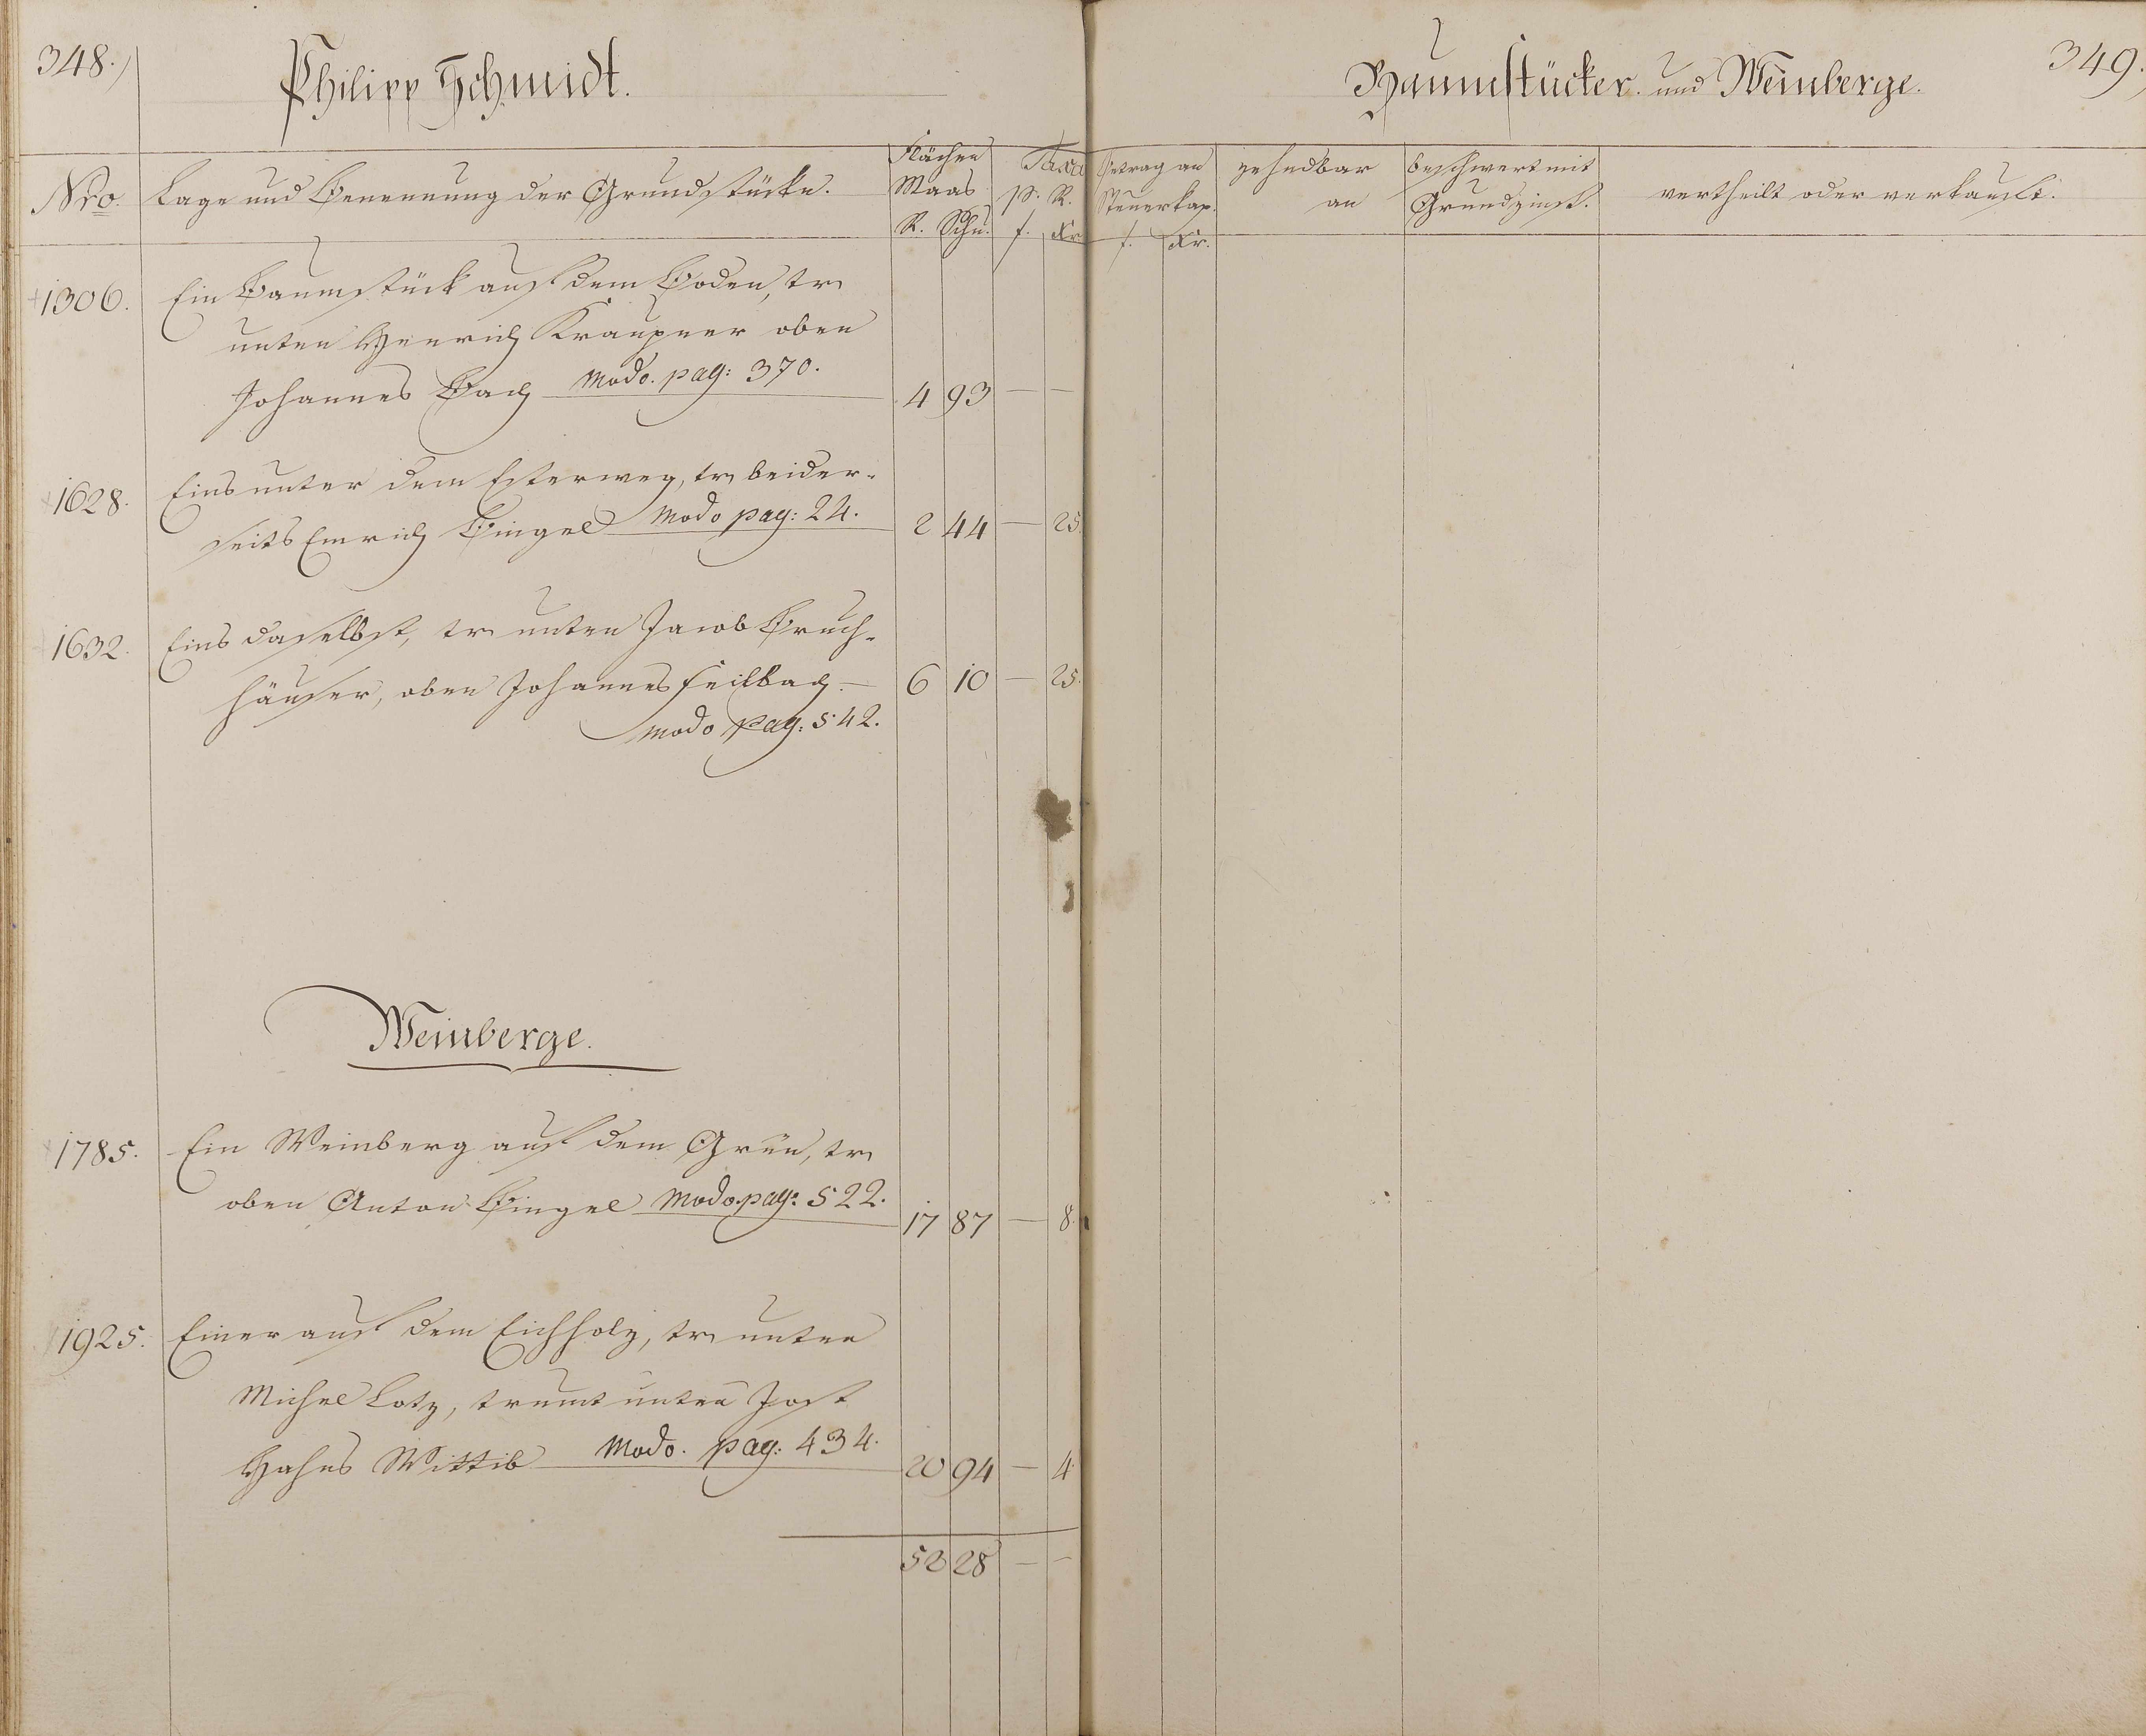 348.)
Philipp Schmidt.
Nro.
Lage und Benennung der Grundstücke.
Flächen
Maas
R. Schu.
Taxa
p. R.
f. Kr.
1306. Ein Baumstück auf dem Boden, tr
unten Henrich Kraupner oben
Johannes Bach modo. pag: 370. 4 93 — —
1628. Eins unter dem Esterweg, tr beider-
seits Emrich Bingel modo pag: 24. 2 44 — 25.
1632. Eins daselbst, tr unten Jacob Bruch-
häuser, oben Johannes Feilbach — 6 10 — 25.
modo pag: 542.
Weinberge.
1785. Ein Weinberg auf dem Grün, tr
oben Anton Bingel modo. pag: 522. 17 87 — 8.
1925. Einer auf dem Eichholz, tr unten
Michel Lotz, trumt unten Jost
Hahns Wittib modo. pag: 434. 20 94 — 4
53 28 — —
Baumstücker und Weinberge.
349.
Betrag an
Steuerkap.
f. Kr.
zehndbar
an
beschwert mit
Grundzinß.
vertheilt oder verkauft.